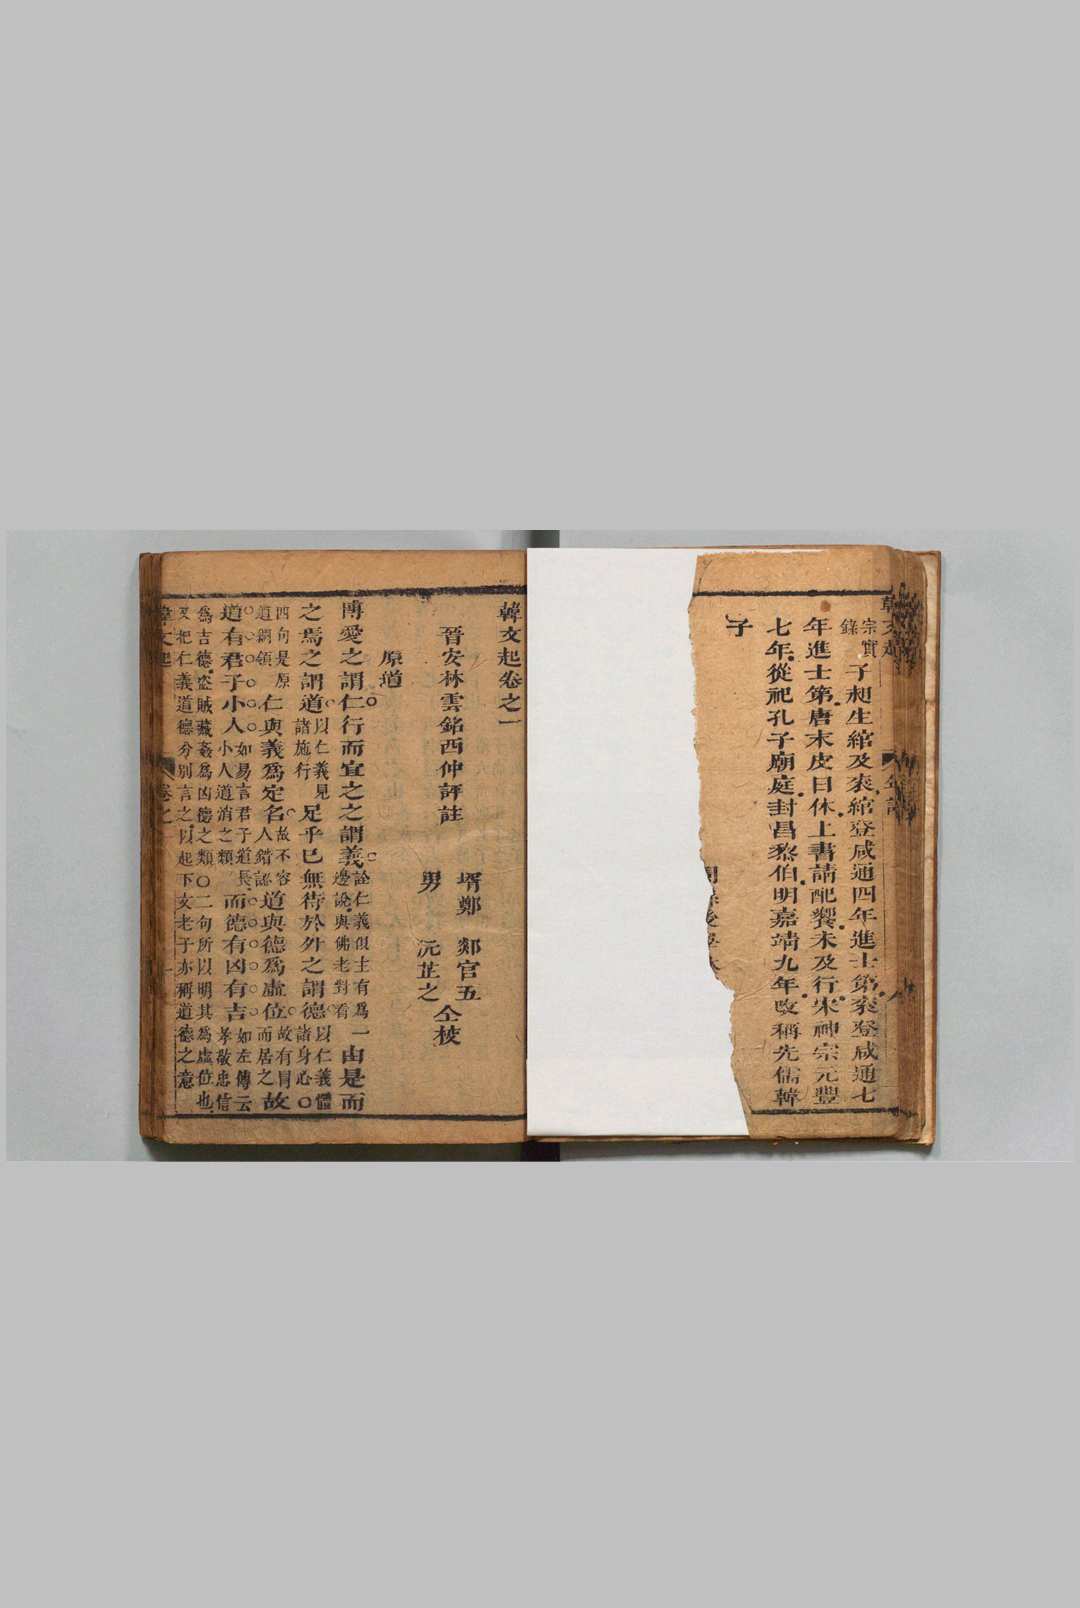 宗實
錄
子昶生綰及袞綰登咸通四年進士第袞登咸通七
年進士第唐末皮日休上書請配饗未及行宋神宗元豐
七年從祀孔子廟庭封昌黎伯明嘉靖九年改稱先儒韓
子
韓文起卷之一
晉安林雲銘西仲評註
壻鄭 郯官五
男 沅芷之
仝挍
原道
博愛之謂仁行而宜之之謂義詮仁義俱主有為一邊說與佛老對看由是而
之焉之謂道以仁義見諸施行足乎已無待於外之謂德以仁義體諸身心〇
四句是原道綱領仁與義為定名故不容人錯認道與德為虛位故有冒而居之故
道有君子小人如易言君子道長小人道消之類而德有凶有吉如左傳云孝敬忠信
為吉德盜賊藏姦為凶德之類〇二句所以明其為虛位也
又把仁義道德分別言之以起下文老子亦稱道德之意
卷之一